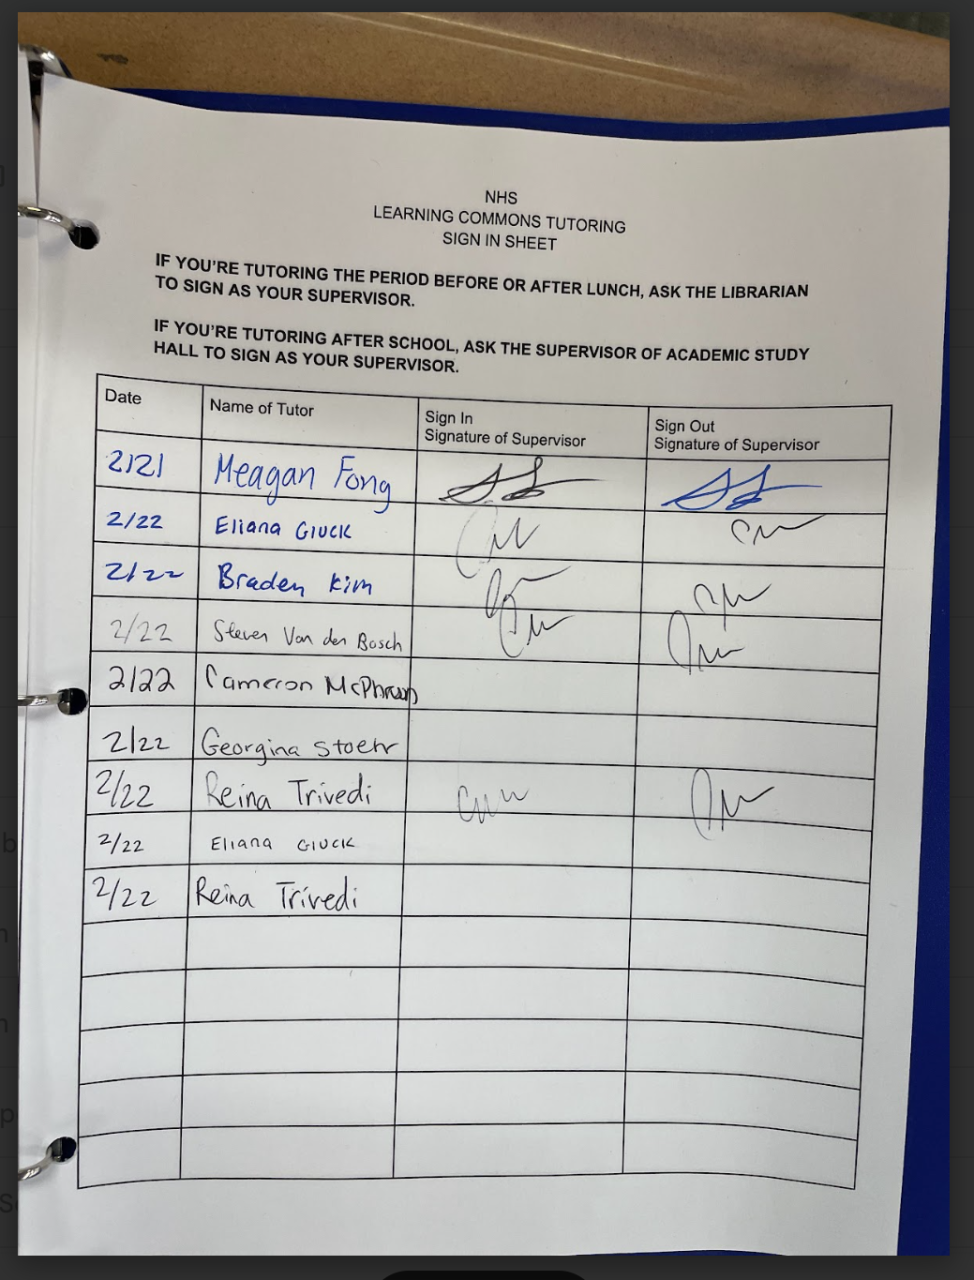 NHS
LEARNING COMMONS TUTORING
SIGN IN SHEET
IF YOU'RE TUTORING THE PERIOD BEFORE OR AFTER LUNCH, ASK THE LIBRARIAN
TO SIGN AS YOUR SUPERVISOR.
IF YOU'RE TUTORING AFTER SCHOOL, ASK THE SUPERVISOR OF ACADEMIC STUDY
HALL TO SIGN AS YOUR SUPERVISOR.
Date Name of Tutor Sign In Signature of Supervisor Sign Out Signature of Supervisor
2/21 Meagan Fong
2/22 Eliana Gluck
2/22 Braden Kim
2/22 Steven Van den Bosch
2/22 Cameron
2/22 Georgina Stoehr
2/22 Reina Trivedi
2/22 Eliana Gluck
2/22 Reina Trivedi